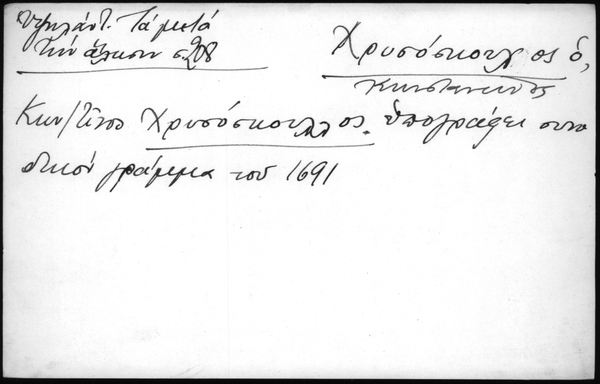 Ὑψηλάντ. Τά μετά
τήν ἅλωσιν σ. 208
Χρυσόσκουλος ὁ,
Κωνσταντῖνος
Κων/τῖνος Χρυσόσκουλλος. ὑπογράφει συνο
δικόν γράμμα τοῦ 1691